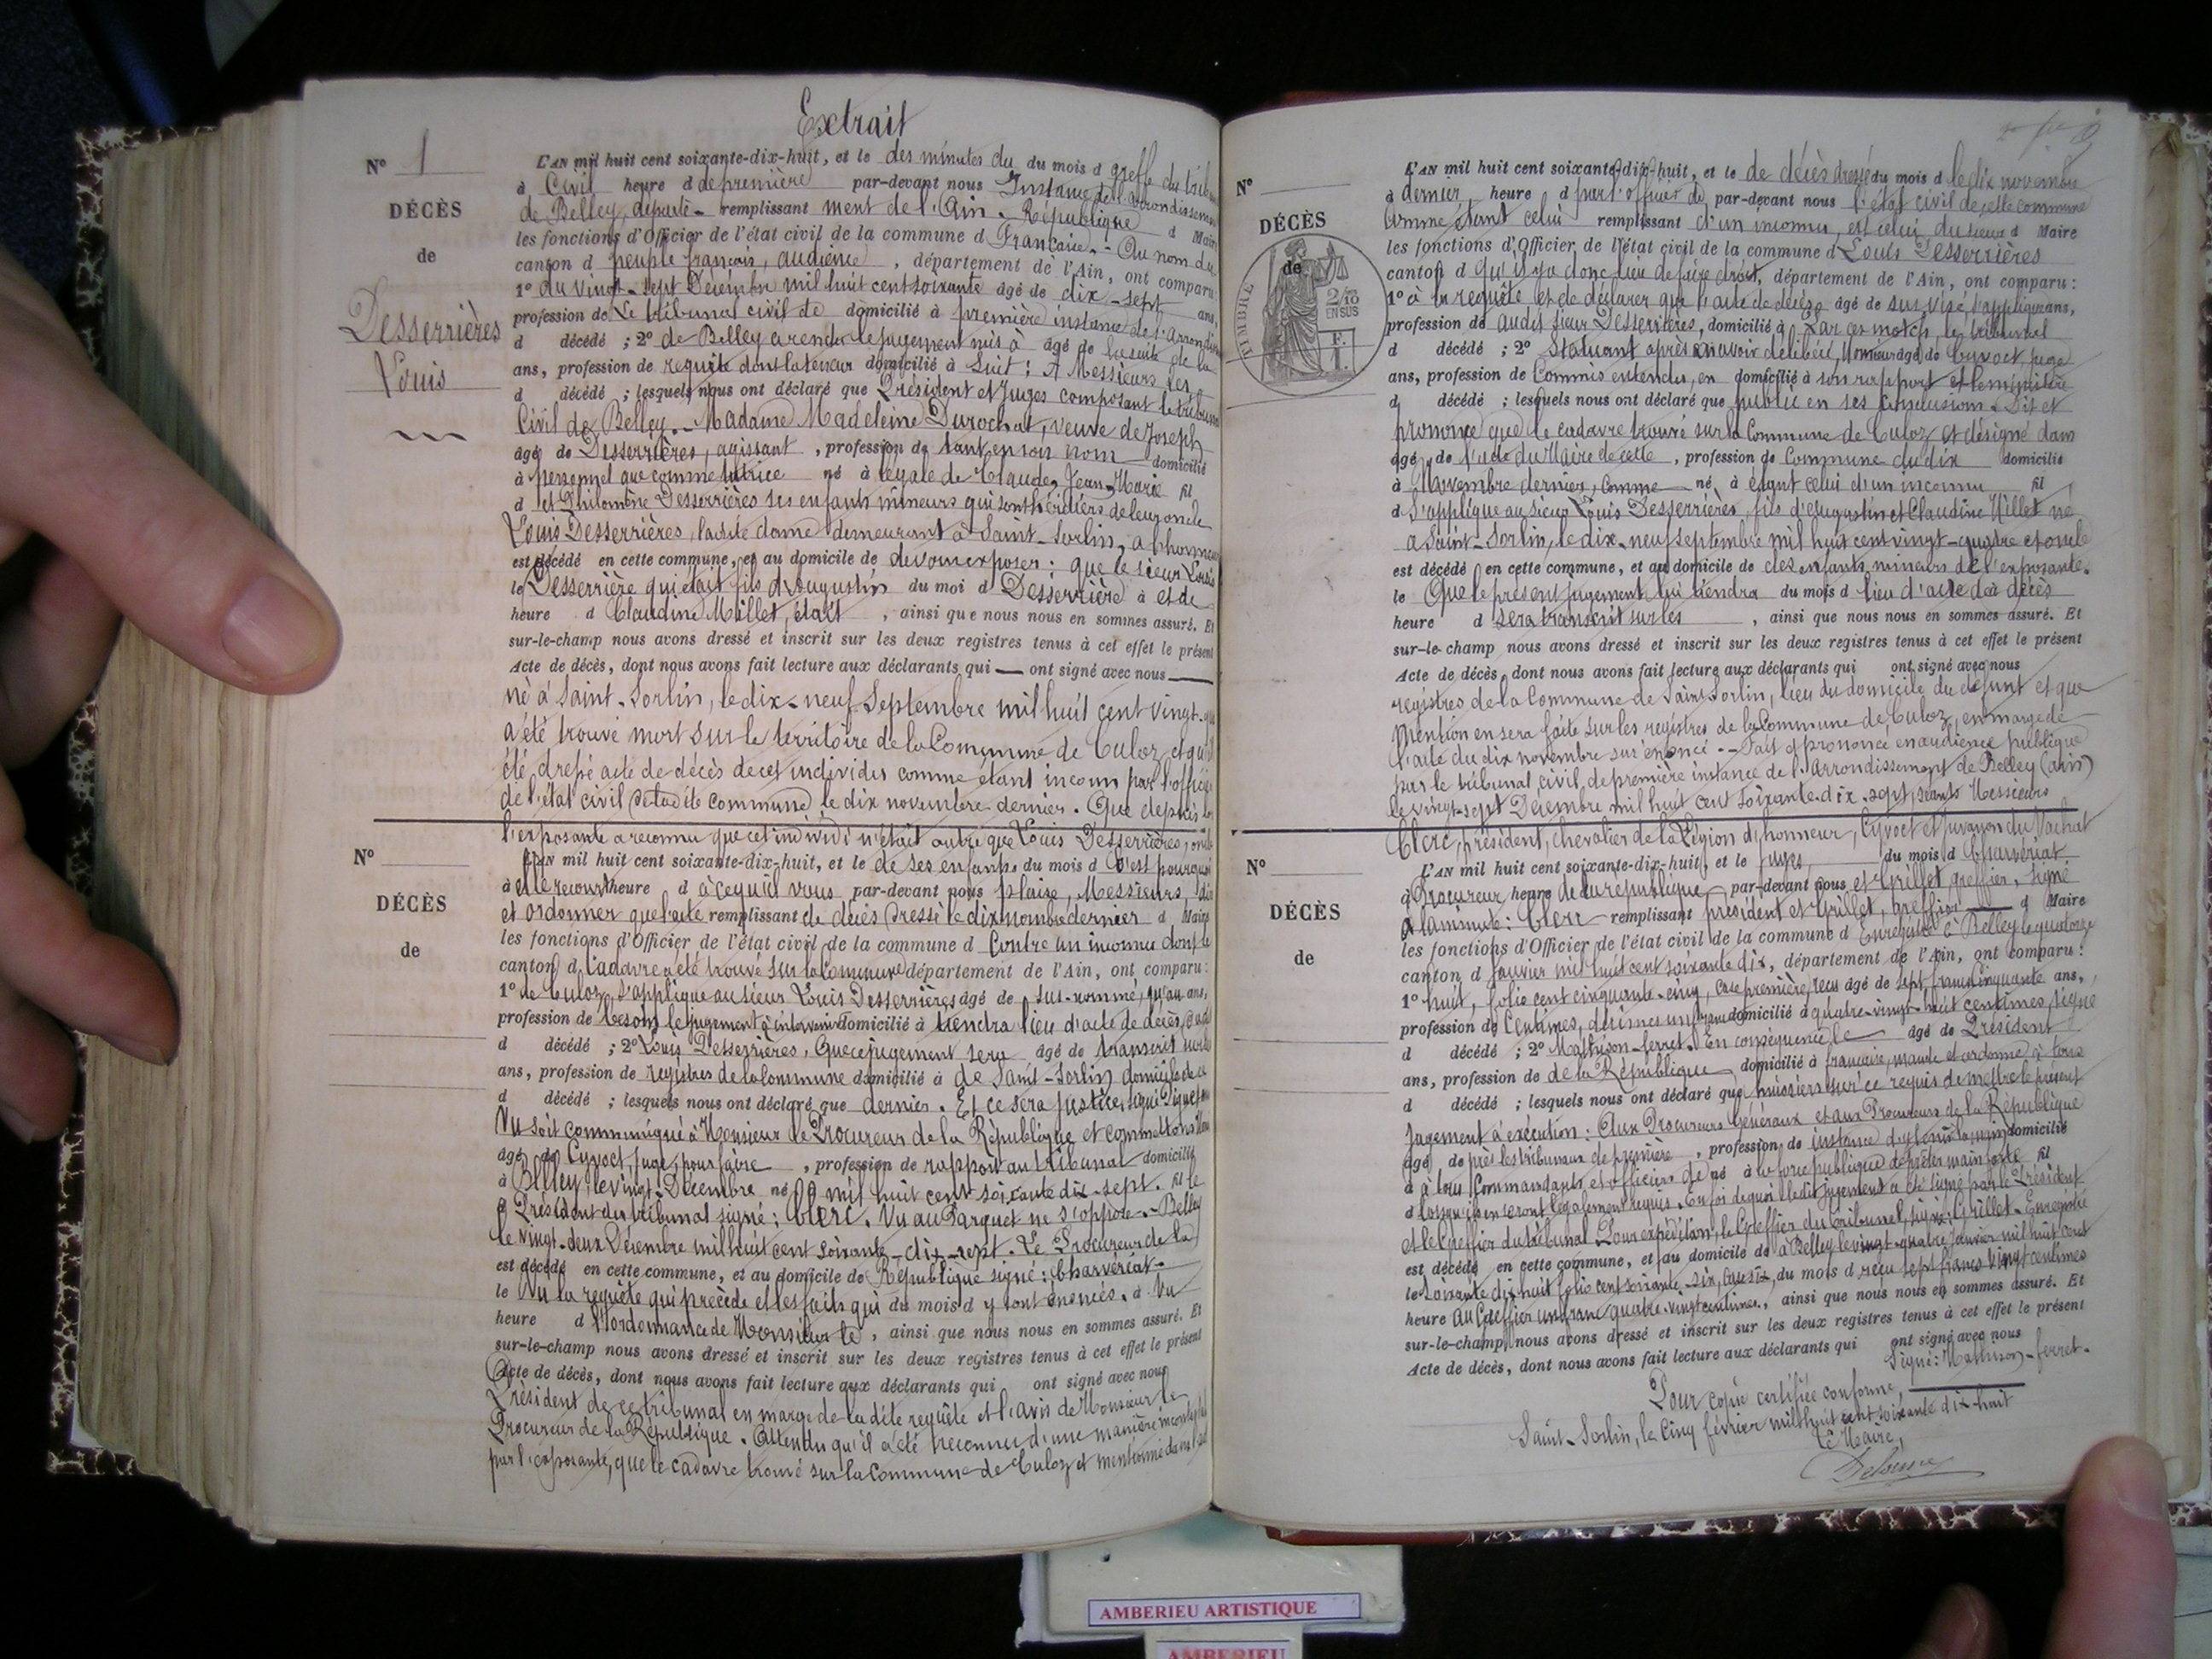 Extrait
N° 1
DÉCÈS
de
Desserrières
Louis
L'AN mil huit cent soixante-dix-huit, et le des minutes du du mois d greffe du trib
à Civil heure d de première par-devant nous Instance de l'arrondissement
de Belley, départe- remplissant ment de l'Ain. République d Maire
les fonctions d'Officier de l'état civil de la commune d Française.- Au nom du
canton d peuple français, audience , département de l'Ain, ont comparu
1° du vingt-sept Décembre mil huit cent soixante âgé de dix-sept ans,
profession de Le tribunal civil de domicilié à première instance de l'arrondis
d décédé ; 2° de Belley a rendu le jugement mis à âgé de la suite de la
ans, profession de requête dont la teneur domicilié à Suit : A Messieurs les
d décédé ; lesquels nous ont déclaré que Président et Juges composant le tribunal
Civil de Belley.- Madame Madeleine Durochat, veuve de Joseph
âgé de Desserrières, agissant , profession de tant en son nom domicilié
à personnel que comme tutrice né à légale de Claude, Jean-Marie fil
d et Philomène Desserrières ses enfants mineurs qui sont héritiers de leur oncle
Louis Desserrières, la dite dame demeurant à Saint-Sorlin, a l'honneur
est décédé en cette commune, et au domicile de de vous exposer : que le sieur Louis
le Desserrière qui était fils d'Augustin du moi d Desserrière à et de
heure d Claudine Millet, était , ainsi que nous nous en sommes assuré. Et
sur-le-champ nous avons dressé et inscrit sur les deux registres tenus à cet effet le présent
Acte de décès, dont nous avons fait lecture aux déclarants qui ont signé avec nous
né à Saint-Sorlin, le dix-neuf Septembre mil huit cent vingt-qu
a été trouvé mort sur le territoire de la Commune de Culoz et qu'il
été dressé acte de décès de cet individu comme étant inconnu par l'officier
de l'état civil de la dite commune le dix novembre dernier. Que depuis lors
l'exposante a reconnu que cet individu n'était autre que Louis Desserrières, oncle
N°
DÉCÈS
de
L'AN mil huit cent soixante-dix-huit, et le de ses enfants du mois d C'est pourquoi
à elle recourt heure d à ce qu'il vous par-devant nous plaise, Messieurs, dire
et ordonner que l'acte remplissant de décès dressé le dix nombre dernier d Maire
les fonctions d'Officier de l'état civil de la commune d Contre un inconnu dont le
canton d cadavre a été trouvé sur la Commune département de l'Ain, ont comparu :
1° de Culoz, s'applique au sieur Louis Desserrières âgé de sus-nommé, qu'au ans,
profession de besoin le jugement à intervenir domicilié à tiendra lieu d'acte de décès, dudit
d décédé ; 2° Louis Desserrières, Que ce jugement sera âgé de transcrit sur les
ans, profession de registres de la Commune domicilié à de Saint-Sorlin domicile de ce
d décédé ; lesquels nous ont déclaré que dernier. Et ce sera justice, signé
Vu soit communiqué à Monsieur le Procureur de la République et commettons
âgé de Cyvoct, juge, pour faire , profession de rapport au tribunal domicilié
à Belley, le vingt Décembre né mil huit cent soixante dix-sept. fil le
d Président du tribunal signé : Clerc. Vu au Parquet ne s'oppose.- Belley
le vingt-deux Décembre mil huit cent soixante-dix-sept. Le Procureur de la
est décédé en cette commune, et au domicile de République signé : Charvériat.-
le Vu la requête qui précède et les faits qui du mois d y sont énoncés. à Vu
heure d l'ordonnance de Monsieur le , ainsi que nous nous en sommes assuré. Et
sur-le-champ nous avons dressé et inscrit sur les deux registres tenus à cet effet le présent
Acte de décès, dont nous avons fait lecture aux déclarants qui ont signé avec nous
Président de ce tribunal en marge de la dite requête et l'avis de Monsieur le
Procureur de la République. Attendu qu'il a été reconnu d'une manière
par l'exposante, que le cadavre trouvé sur la Commune de Culoz et mentionné dans l'acte
N°
DÉCÈS
de
TIMBRE
2/10
EN SUS
F.
1.
L'AN mil huit cent soixante-dix-huit, et le de décès dressé du mois d le dix novembre
à dernier heure d par l'officier de par-devant nous l'état civil de celle commune
Comme étant celui remplissant d'un inconnu, est celui du sieur d Maire
les fonctions d'Officier de l'état civil de la commune d Louis Desserrières
canton d Qu'il y a donc lieu de faire droit, département de l'Ain, ont comparu :
1° à la requête et de déclarer que l'acte de décès âgé de sus visé s'applique ans,
profession de audit sieur Desserrières, domicilié à Par ces motifs, le tribunal
d décédé ; 2° Statuant après en avoir délibéré, Monsieur âgé de Cyvoct juge
ans, profession de Commis entendu, en domicilié à son rapport et le ministère
d décédé ; lesquels nous ont déclaré que public en ses conclusions. Dit et
prononce que le cadavre trouvé sur la Commune de Culoz et désigné dans
âgé de l'acte du Maire de celle , profession de Commune du dix domicilié
à Novembre dernier, comme né à étant celui d'un inconnu fil
d S'applique au sieur Louis Desserrières, fils d'Augustin et Claudine Millet né
à Saint-Sorlin, le dix-neuf Septembre mil huit cent vingt-quatre et oncle
est décédé en cette commune, et au domicile de des enfants mineurs de l'exposante.
le Que le présent jugement qui tiendra du mois d lieu d'acte de à décès
heure d sera transcrit sur les , ainsi que nous nous en sommes assuré. Et
sur-le-champ nous avons dressé et inscrit sur les deux registres tenus à cet effet le présent
Acte de décès, dont nous avons fait lecture aux déclarants qui ont signé avec nous
registres de la Commune de Saint Sorlin, lieu du domicile du défunt et que
Mention en sera faite sur les registres de la Commune de Culoz, en marge de
l'acte du dix novembre sus énoncé.- Fait et prononcé en audience publique
par le tribunal civil de première instance de l'arrondissement de Belley (ain)
le vingt-sept Décembre mil huit cent soixante-dix-sept, séants Messieurs
Clerc, président, chevalier de la Légion d'honneur, Cyvoct et du Vachat
N°
DÉCÈS
de
L'AN mil huit cent soixante-dix-huit, et le juges, du mois d Charvériat
à Procureur heure d de la république par-devant nous et Grillet greffier, signé
à la minute : Clerc remplissant président et Grillet, greffier d Maire
les fonctions d'Officier de l'état civil de la commune d Enregistré à Belley le quatorze
canton d janvier mil huit cent soixante dix, département de l'Ain, ont comparu :
1° huit, folio cent cinquante-cinq, case première, reçu âgé de sept francs cinquante ans,
profession de Centimes, décimes un franc domicilié à quatre-vingt-huit centimes, signé
d décédé ; 2° Mathison-ferret. En conséquence le âgé de Président
ans, profession de de la République domicilié à française, mande et ordonne à tous
d décédé ; lesquels nous ont déclaré que huissiers sur ce requis de mettre le présent
Jugement à exécution : Aux Procureurs Généraux et aux Procureurs de la République
âgé de près les tribunaux de première , profession de instance d'y tenir la main domicilié
à à tous Commandants et officiers de né à la force publique de prêter main forte fil
d lorsqu'ils en seront légalement requis. En foi de quoi le dit jugement a été signé par le Président
et le Greffier du tribunal. Pour expédition, le Greffier du tribunal, signé : Grillet. Enregistré
est décédé en cette commune, et au domicile de à Belley le vingt-quatre janvier mil huit cent
le soixante dix huit folio cent soixante-six, case six, du mois d reçu sept francs vingt centimes
heure au Greffier un franc quatre-vingt centimes, ainsi que nous nous en sommes assuré. Et
sur-le-champ nous avons dressé et inscrit sur les deux registres tenus à cet effet le présent
Acte de décès, dont nous avons fait lecture aux déclarants qui ont signé avec nous
Signé : Mathison-ferret.
Pour copie certifiée conforme,
Saint-Sorlin, le cinq février mil huit cent soixante dix-huit
Le Maire,
AMBERIEU ARTISTIQUE
AMBERIEU